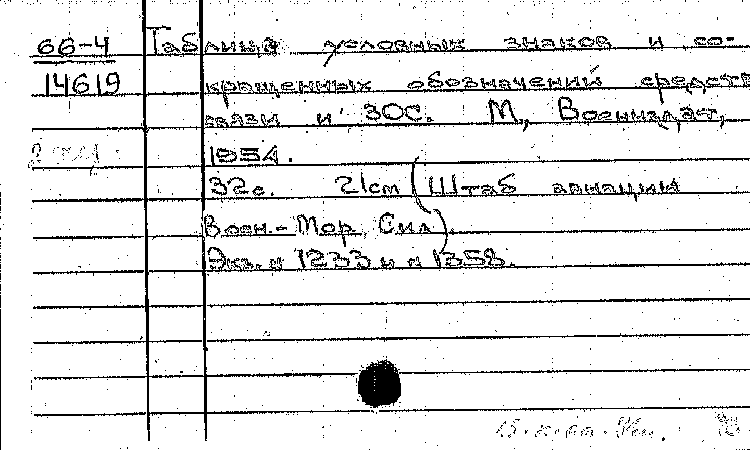 66-4 Таблица условных знаков и со-
14619 кращенных обозначений средств
связи и ЗОС. М., Воениздат,
1954.
32с. 21см (Штаб авиации
Воен.-Мор. Сил).
Экз. № 1233 и № 1358.